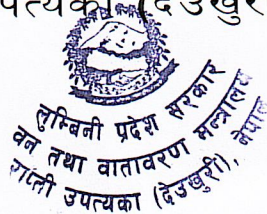 पत्यका (देउखुर
लुम्बिनी प्रदेश सरकार
वन तथा वातावरण मन्त्रालय
राप्ती उपत्यका (देउखुरी), नेपाल